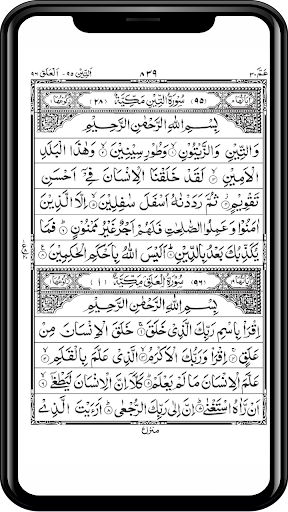 عَمَّ ٣٠ ٨٣٩ اَلتِّيْن ٩٥ اَلْعَلَق ٩٦
(٩٥) سُوْرَةُ التِّيْنِ مَكِّيَّةٌ (٢٨)
بِسْمِ اللّٰهِ الرَّحْمٰنِ الرَّحِيْمِ
وَالتِّيْنِ وَالزَّيْتُوْنِ ۙ وَطُوْرِ سِيْنِيْنَ ۙ وَهٰذَا الْبَلَدِ
الْاَمِيْنِ ۙ لَقَدْ خَلَقْنَا الْاِنْسَانَ فِيْٓ اَحْسَنِ
تَقْوِيْمٍ ۫ ثُمَّ رَدَدْنٰهُ اَسْفَلَ سٰفِلِيْنَ ۙ اِلَّا الَّذِيْنَ
اٰمَنُوْا وَعَمِلُوا الصّٰلِحٰتِ فَلَهُمْ اَجْرٌ غَيْرُ مَمْنُوْنٍ ؕ فَمَا
يُكَذِّبُكَ بَعْدُ بِالدِّيْنِ ؕ اَلَيْسَ اللّٰهُ بِاَحْكَمِ الْحٰكِمِيْنَ
(٩٦) سُوْرَةُ الْعَلَقِ مَكِّيَّةٌ (١)
بِسْمِ اللّٰهِ الرَّحْمٰنِ الرَّحِيْمِ
اِقْرَاْ بِاسْمِ رَبِّكَ الَّذِيْ خَلَقَ ۚ خَلَقَ الْاِنْسَانَ مِنْ
عَلَقٍ ۚ اِقْرَاْ وَرَبُّكَ الْاَكْرَمُ ۙ الَّذِيْ عَلَّمَ بِالْقَلَمِ ۙ
عَلَّمَ الْاِنْسَانَ مَا لَمْ يَعْلَمْ ؕ كَلَّآ اِنَّ الْاِنْسَانَ لَيَطْغٰٓى ۙ
اَنْ رَّاٰهُ اسْتَغْنٰى ؕ اِنَّ اِلٰى رَبِّكَ الرُّجْعٰى ؕ اَرَءَيْتَ الَّذِيْ
منزل٧